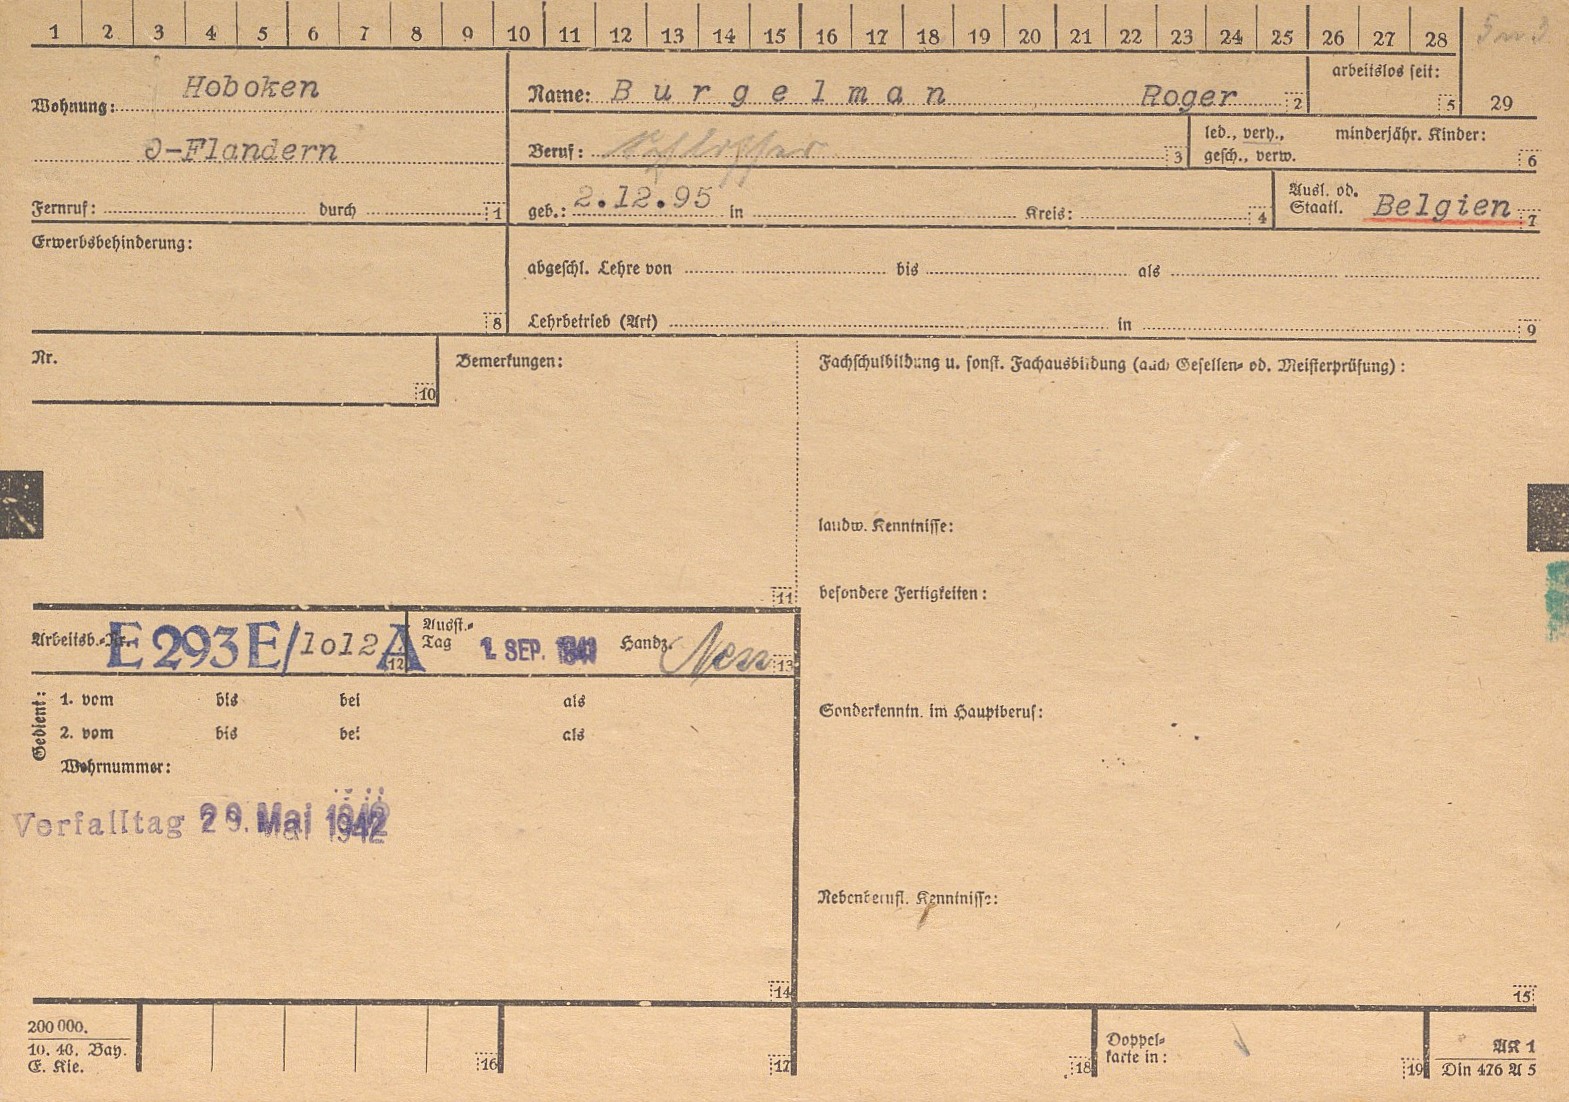 1 2 3 4 5 6 7 8 9 10 11 12 13 14 15 16 17 18 19 20 21 22 23 24 25 26 27 28
Wohnung: Hoboken
O-Flandern
Fernruf: durch 1
Name: Burgelman Roger 2
arbeitslos seit: 5
29
Beruf: Schlosser 3
led., verh., gesch., verw.
minderjähr. Kinder: 6
geb.: 2.12.95 in Kreis: 4
Ausl. od. Staatl. Belgien 7
Erwerbsbehinderung: 8
abgeschl. Lehre von bis als
Lehrbetrieb (Art) in 9
Nr. 10
Bemerkungen: 11
Fachschulbildung u. sonst. Fachausbildung (auch Gesellen- od. Meisterprüfung):
landw. Kenntnisse:
besondere Fertigkeiten:
Arbeitsb.-Nr. E 293 E/1o12 A 12
Ausst.-Tag 1. SEP. 1941 Handz. 13
Sonderkenntn. im Hauptberuf:
Gedient:
1. vom bis bei als
2. vom bis bei als
Wehrnummer:
Verfalltag 29. Mai 1942
14
Nebenberufl. Kenntnisse:
15
200 000.
10. 40. Bay.
E. Kie.
16
17
18
Doppel-
karte in:
19
AK 1
Din 476 A 5